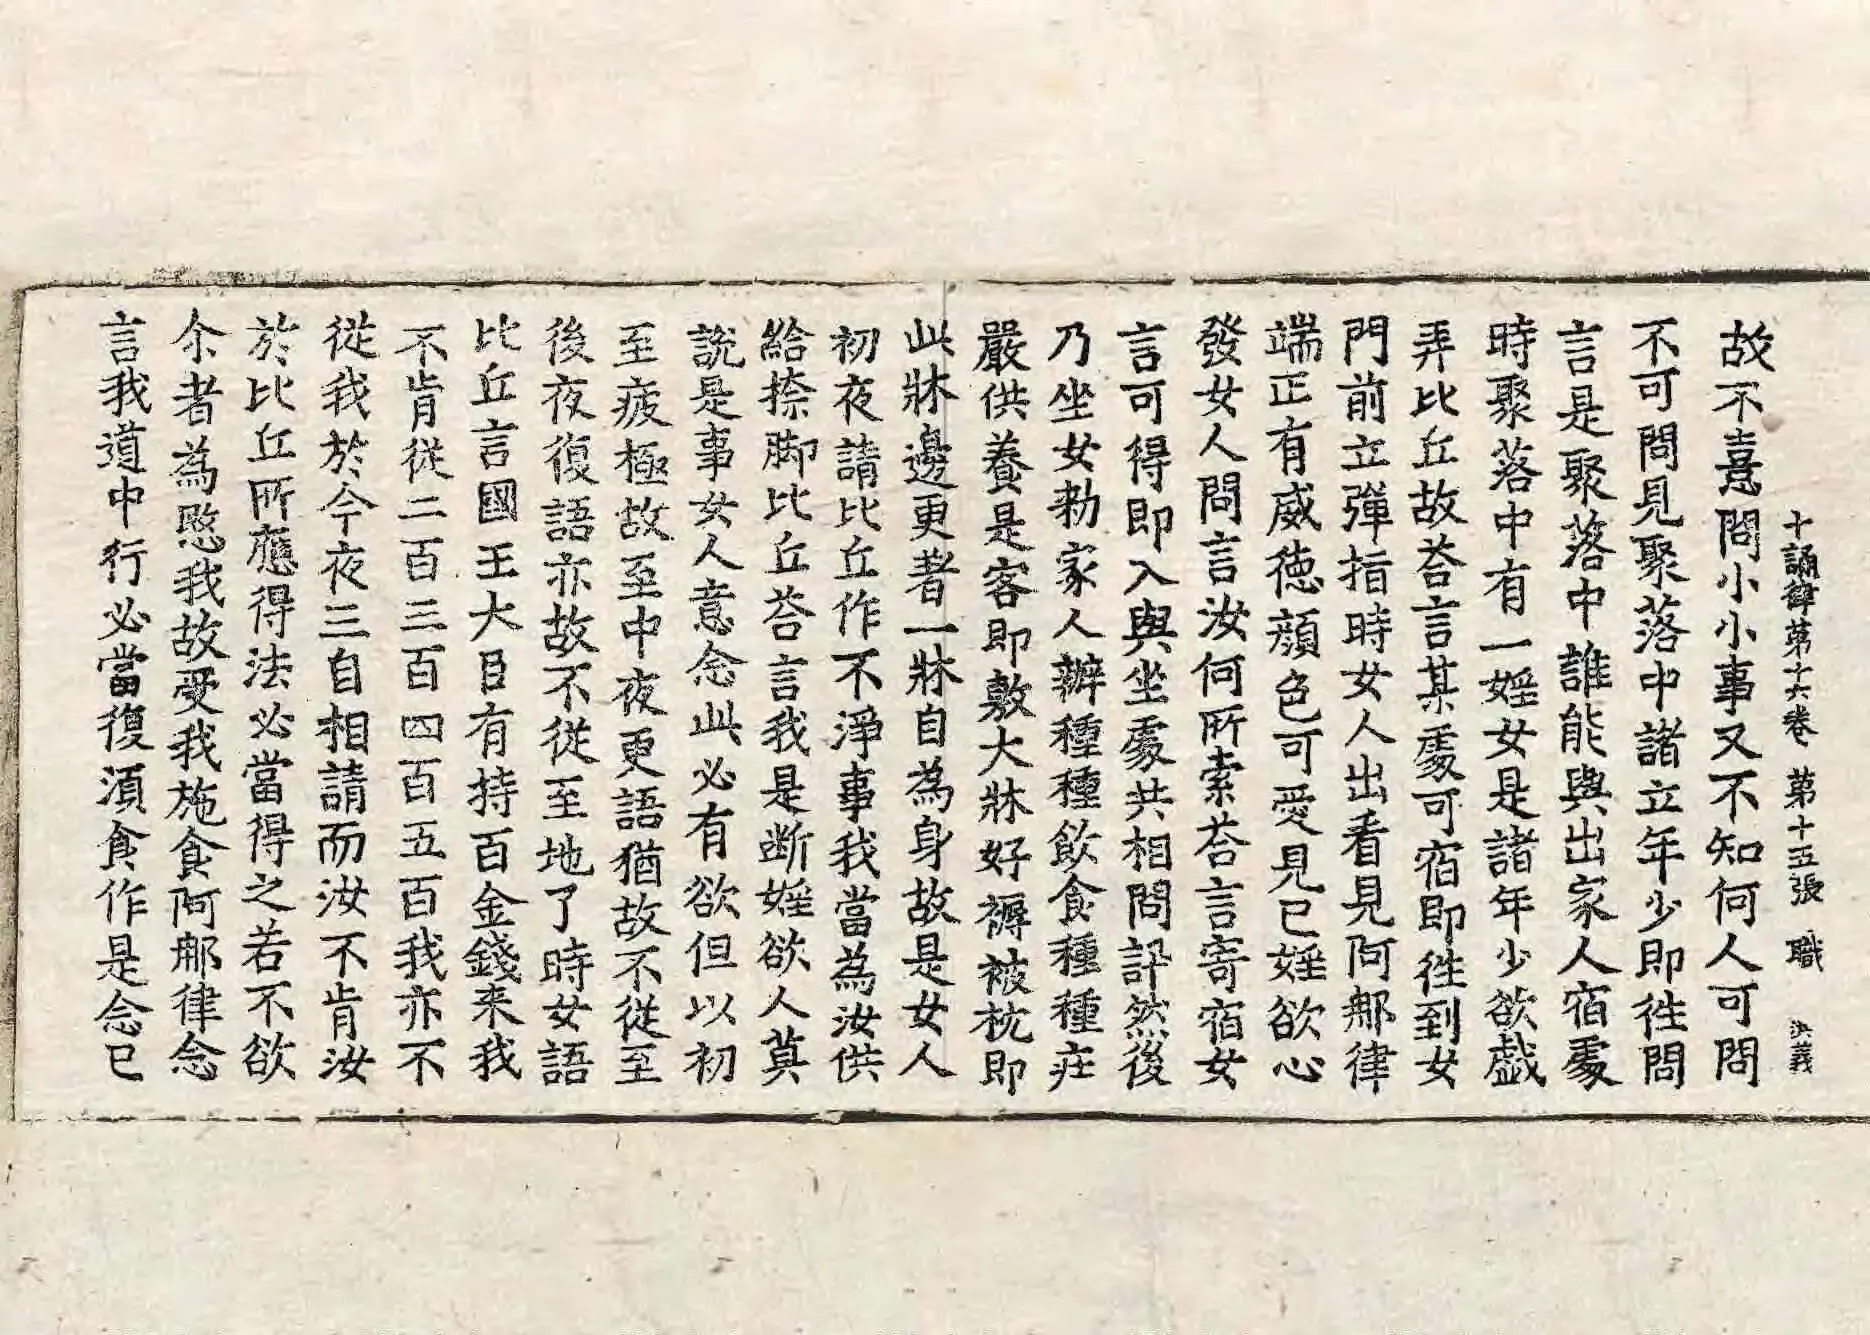 十誦律第十六卷 第十五張 職 洪義
故不憙問小小事又不知何人可問
不可問見聚落中諸立年少即徃問
言是聚落中誰能與出家人宿處
時聚落中有一婬女是諸年少欲戯
弄比丘故荅言某處可宿即徃到女
門前立彈指時女人出看見阿那律
端正有威徳顔色可愛見已婬欲心
發女人問言汝何所索荅言寄宿女
言可得即入與坐處共相問訊然後
乃坐女勑家人辦種種飲食種種莊
嚴供養是客即敷大牀好褥被枕即
此牀邊更著一牀自為身故是女人
初夜請比丘作不淨事我當為汝供
給捺脚比丘荅言我是断婬欲人莫
說是事女人意念此必有欲但以初
至疲極故至中夜更語猶故不從至
後夜復語亦故不從至地了時女語
比丘言國王大臣有持百金錢来我
不肯從二百三百四百五百我亦不
從我於今夜三自相請而汝不肯汝
於比丘所應得法必當得之若不欲
尒者為愍我故受我施食阿那律念
言我道中行必當復湏食作是念已